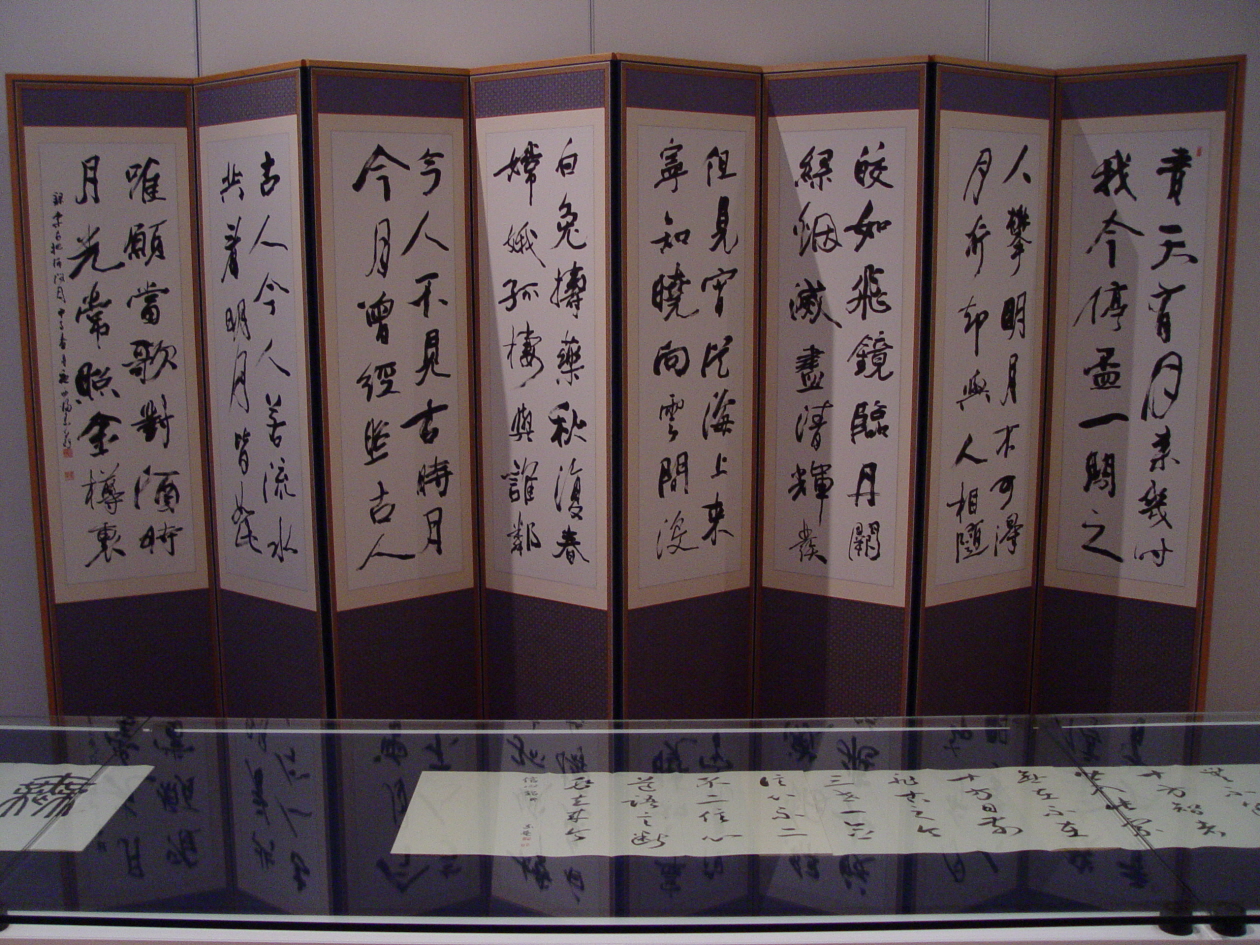 青天有月來幾時
我今停盃一問之
人攀明月不可得
月行却與人相隨
皎如飛鏡臨丹闕
綠烟滅盡清輝發
但見宵從海上來
寧知曉向雲間沒
白兔搗藥秋復春
嫦娥孤棲與誰鄰
今人不見古時月
今月曾經照古人
古人今人若流水
共看明月皆如此
唯願當歌對酒時
月光常照金樽裏
十方智者
無在不在
十方目前
信心不二
不二信心